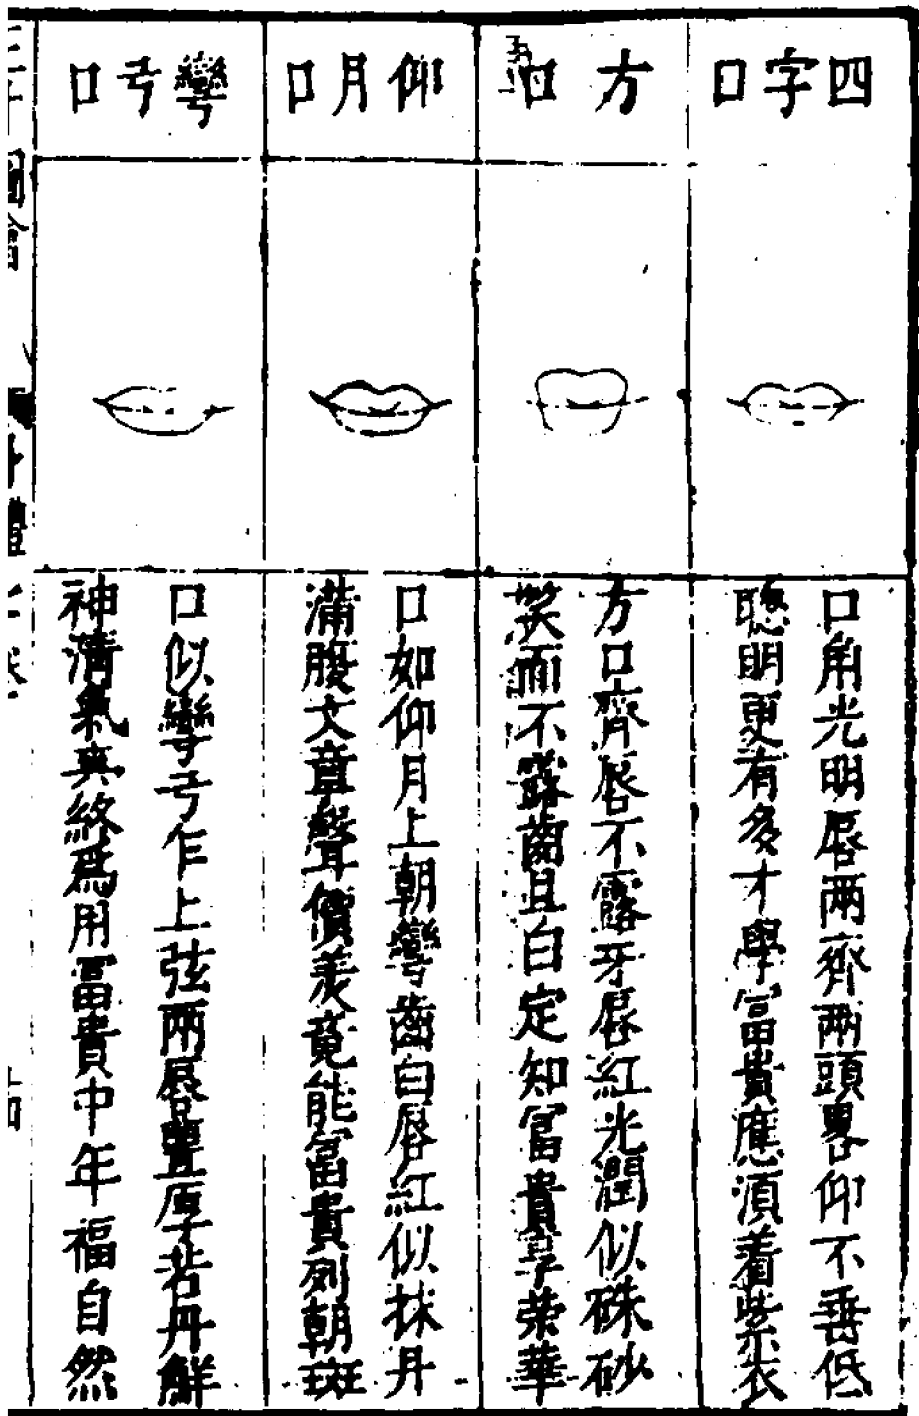 四字口
口角光明唇两齊兩頭畧仰不垂低
聰明更有多才學富貴應須着紫衣
方口
方口齊唇不露牙唇紅光潤似硃砂
笑而不露齒且白定知富貴享榮華
仰月口
口如仰月上朝彎齒白唇紅似抹丹
滿腹文章聲價美竟能富貴列朝班
彎弓口
口似彎弓乍上弦兩唇豐厚若丹鮮
神清氣爽終爲用富貴中年福自然